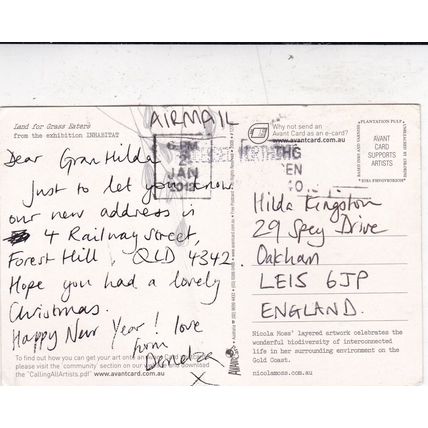 AIRMAIL
Land for Grass Eaters
from the exhibition INHABITAT
Dear Gran Hilda
Just to let you know
our new address is
4 Railway Street,
Forest Hill, QLD 4342.
Hope you had a lovely
Christmas.
Happy New Year! love
from
Danetza
X
To find out how you can get your art onto an Avant Card
please visit the 'community' section on our website and download
the "CallingAllArtists.pdf" www.avantcard.com.au
6 PM
2
JAN
2013
Why not send an
Avant Card as an e-card?
www.avantcard.com.au
PLANTATION PULP
AVANT
CARD
SUPPORTS
ARTISTS
Hilda Kingston
29 Spey Drive
Oakham
LE15 6JP
ENGLAND.
Nicola Moss' layered artwork celebrates the
wonderful biodiversity of interconnected
life in her surrounding environment on the
Gold Coast.
nicolamoss.com.au